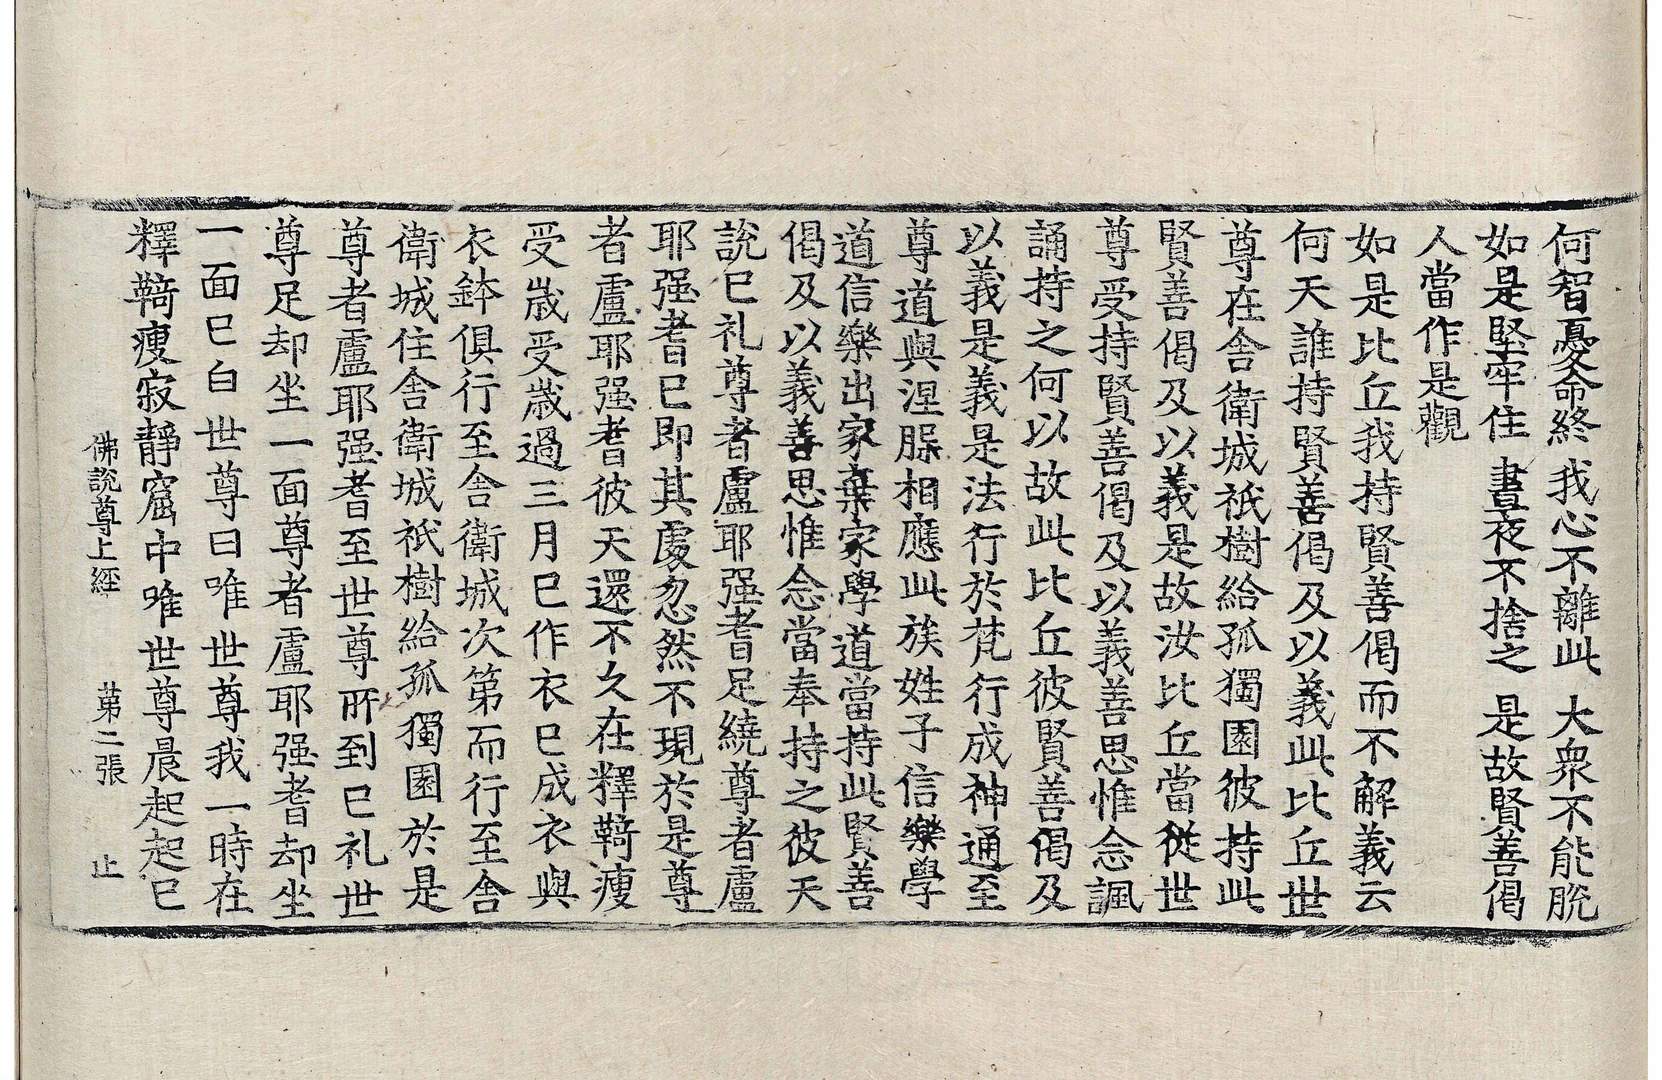 何智憂命終　我心不離此　大衆不能脫
如是堅牢住　晝夜不捨之　是故賢善偈
人當作是觀
如是比丘我持賢善偈而不解義云
何天誰持賢善偈及以義此比丘世
尊在舍衛城祇樹給孤獨園彼持此
賢善偈及以義是故汝比丘當從世
尊受持賢善偈及以義善思惟念諷
誦持之何以故此比丘彼賢善偈及
以義是義是法行於梵行成神通至
尊道與涅脲相應此族姓子信樂學
道信樂出家棄家學道當持此賢善
偈及以義善思惟念當奉持之彼天
說已礼尊者盧耶强耆足繞尊者盧
耶强耆已即其處忽然不現於是尊
者盧耶强耆彼天還不久在釋鞞瘦
受歲受歲過三月已作衣已成衣與
衣鉢俱行至舍衛城次第而行至舍
衛城住舍衛城祇樹給孤獨園於是
尊者盧耶强耆至世尊所到已礼世
尊足却坐一面尊者盧耶强耆却坐
一面已白世尊曰唯世尊我一時在
釋鞞瘦寂靜窟中唯世尊晨起起已
佛說尊上經　第二張　止